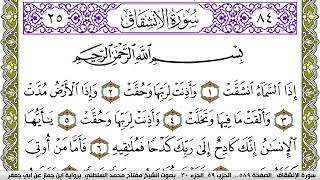 ٨٤ سُورَةُ الِانشِقَاقِ ٢٥
بِسْمِ اللَّهِ الرَّحْمَٰنِ الرَّحِيمِ
إِذَا السَّمَاءُ انشَقَّتْ ١ وَأَذِنَتْ لِرَبِّهَا وَحُقَّتْ ٢ وَإِذَا الْأَرْضُ مُدَّتْ
٣ وَأَلْقَتْ مَا فِيهَا وَتَخَلَّتْ ٤ وَأَذِنَتْ لِرَبِّهَا وَحُقَّتْ ٥ يَٰأَيُّهَا
الْإِنسَٰنُ إِنَّكَ كَادِحٌ إِلَىٰ رَبِّكَ كَدْحًا فَمُلَٰقِيهِ ٦ فَأَمَّا مَنْ أُوتِيَ
سورة الإنشقاق .. الصفحة ٥٨٩ .. الجزء ٥٩ .. الجزء ٣٠ .. بصوت الشيخ مفتاح محمد السلطني .. برواية ابن جماز عن أبي جعفر